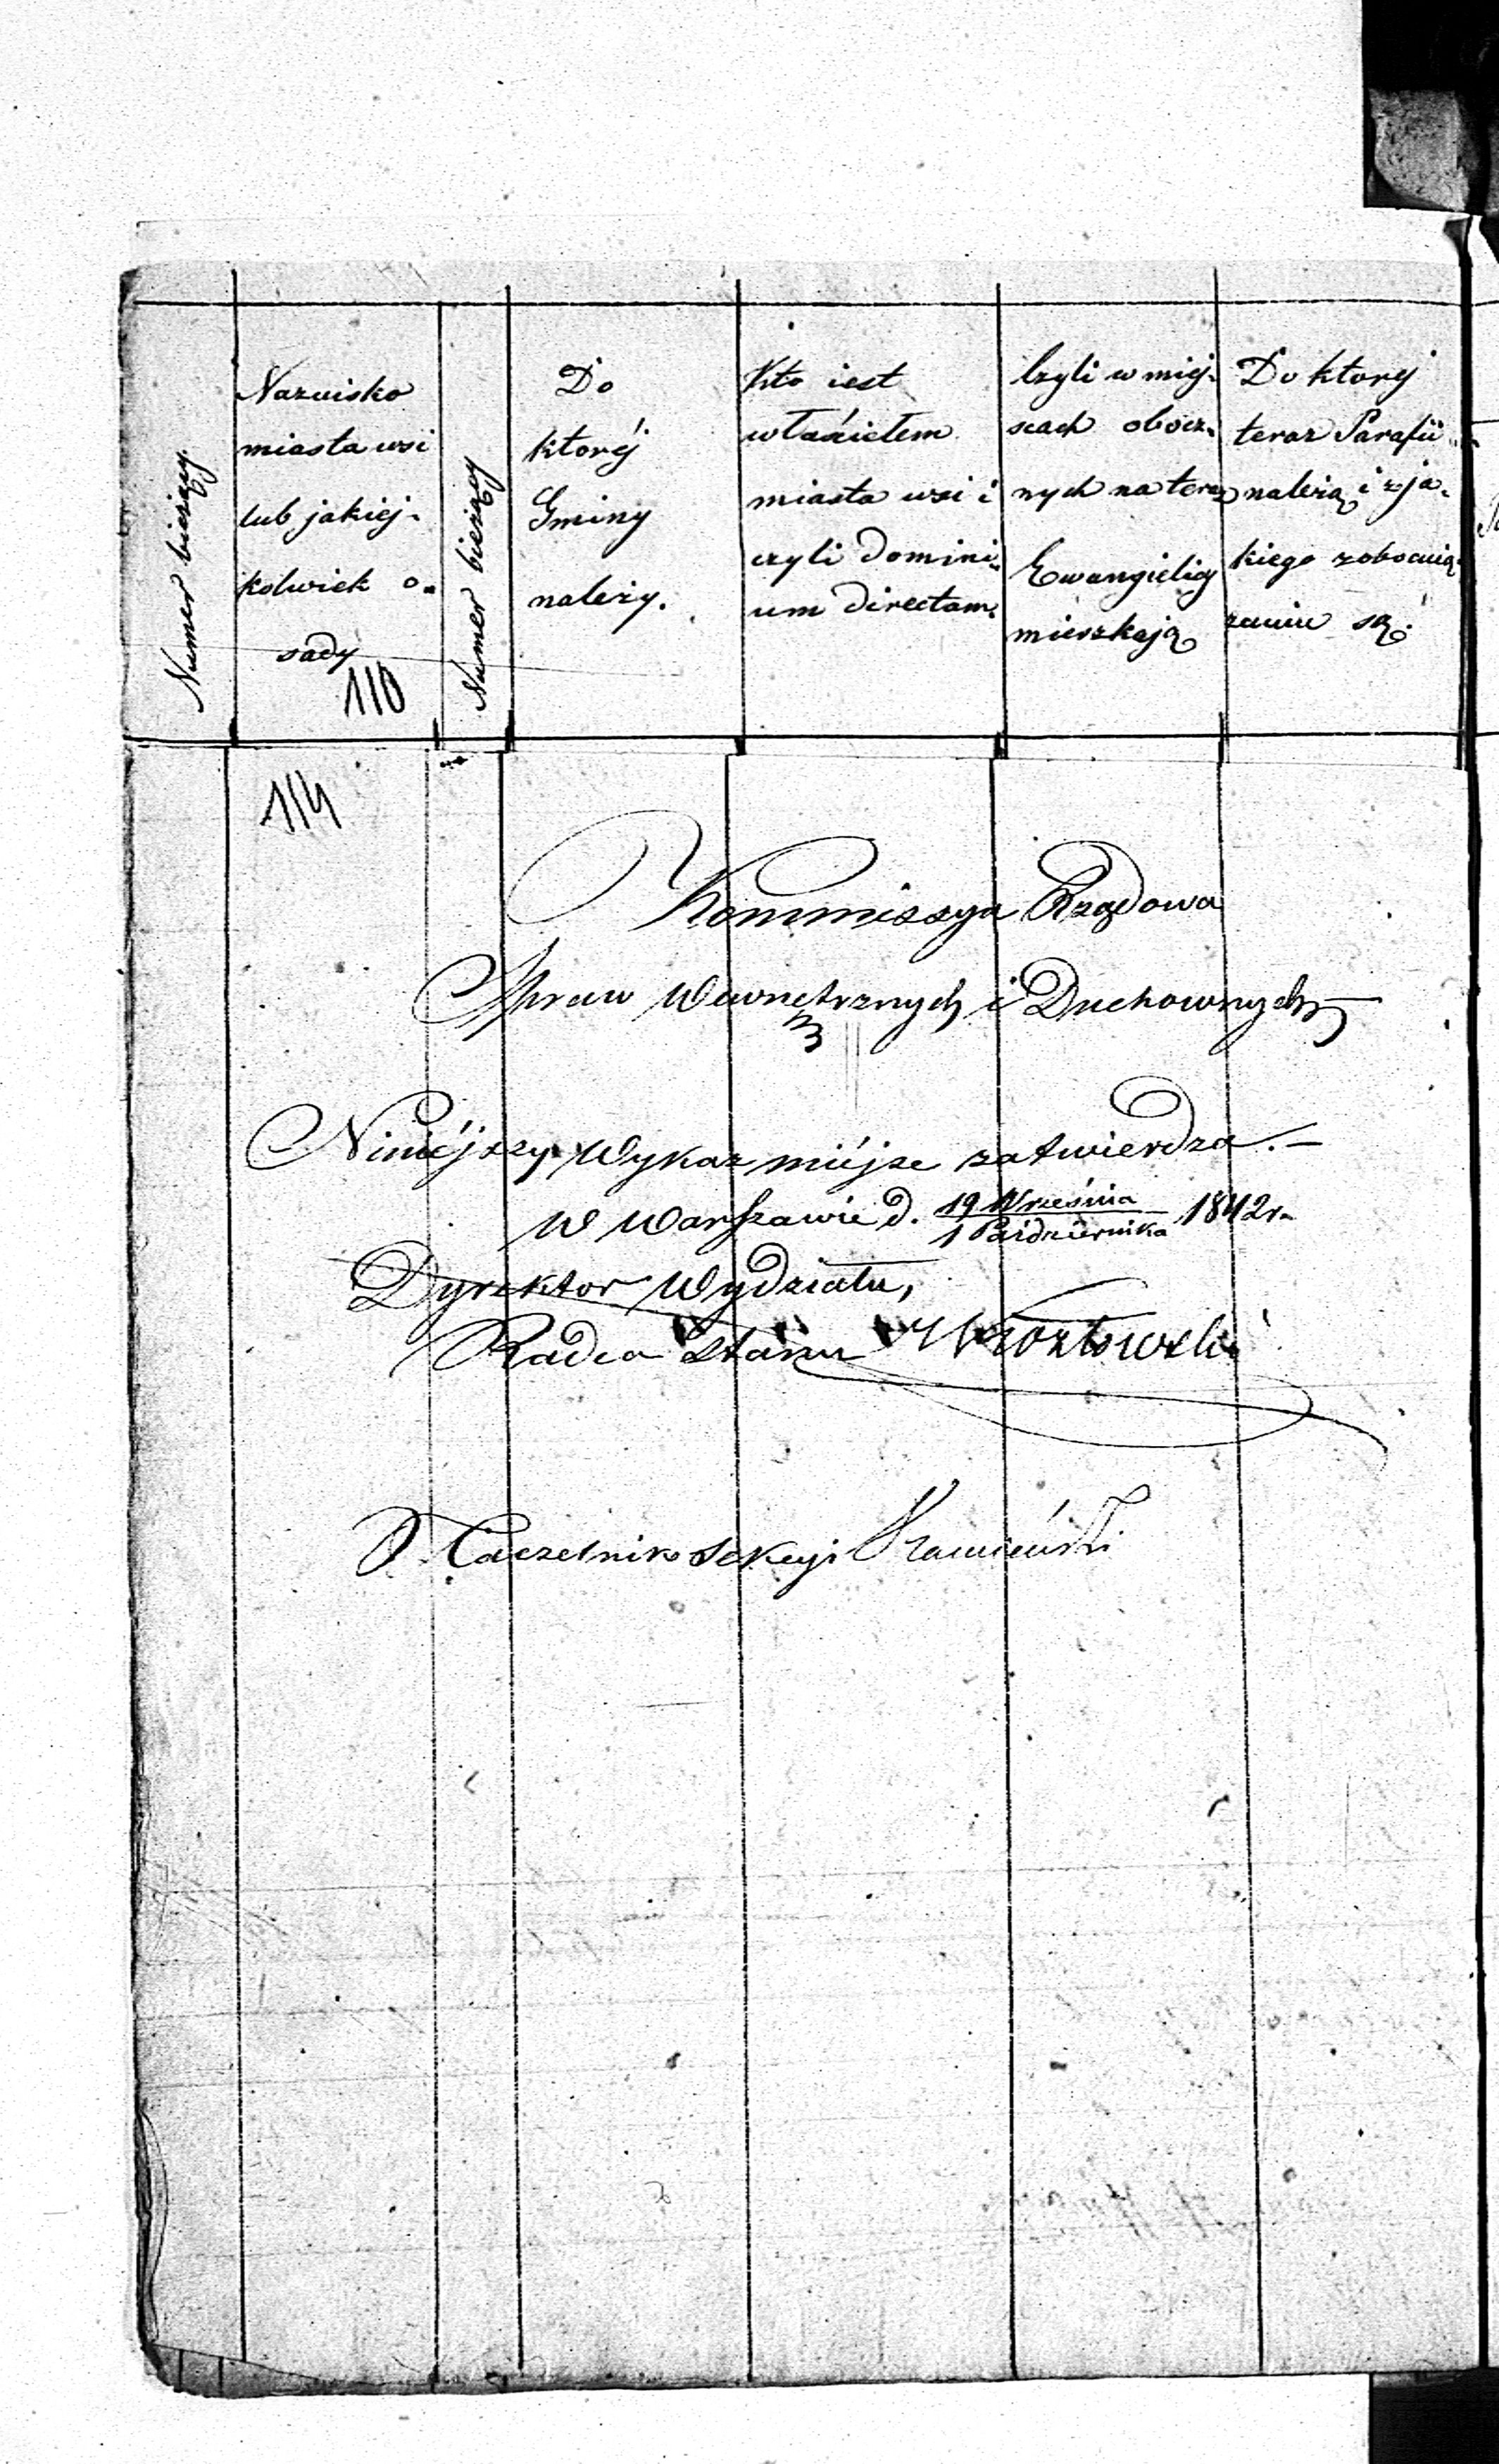 Numer bieżący.
Nazwisko
miasta wsi
lub jakiej-
kolwiek o-
sady
110
Numer bieżący
Do
ktoréj
Gminy
należy.
Kto iest
właścicielem
miasta wsi i
czyli domini-
um directum.
Czyli w miej-
scach obocz-
nych na teraz
Ewangielicy
mieszkają
Do ktorej
teraz Parafii
należą i z ja-
kiego zobowią-
zania są.
114
Kommissya Rządowa
Spraw Wewnętrznych i Duchownych
Niniéjszy Wykaz miéjsc zatwierdza.–
W Warszawie d. 19 Września / 1 Października 1842 r.
Dyrektor Wydziału,
Radca Stanu
Naczelnik Sekcyi Kamieński